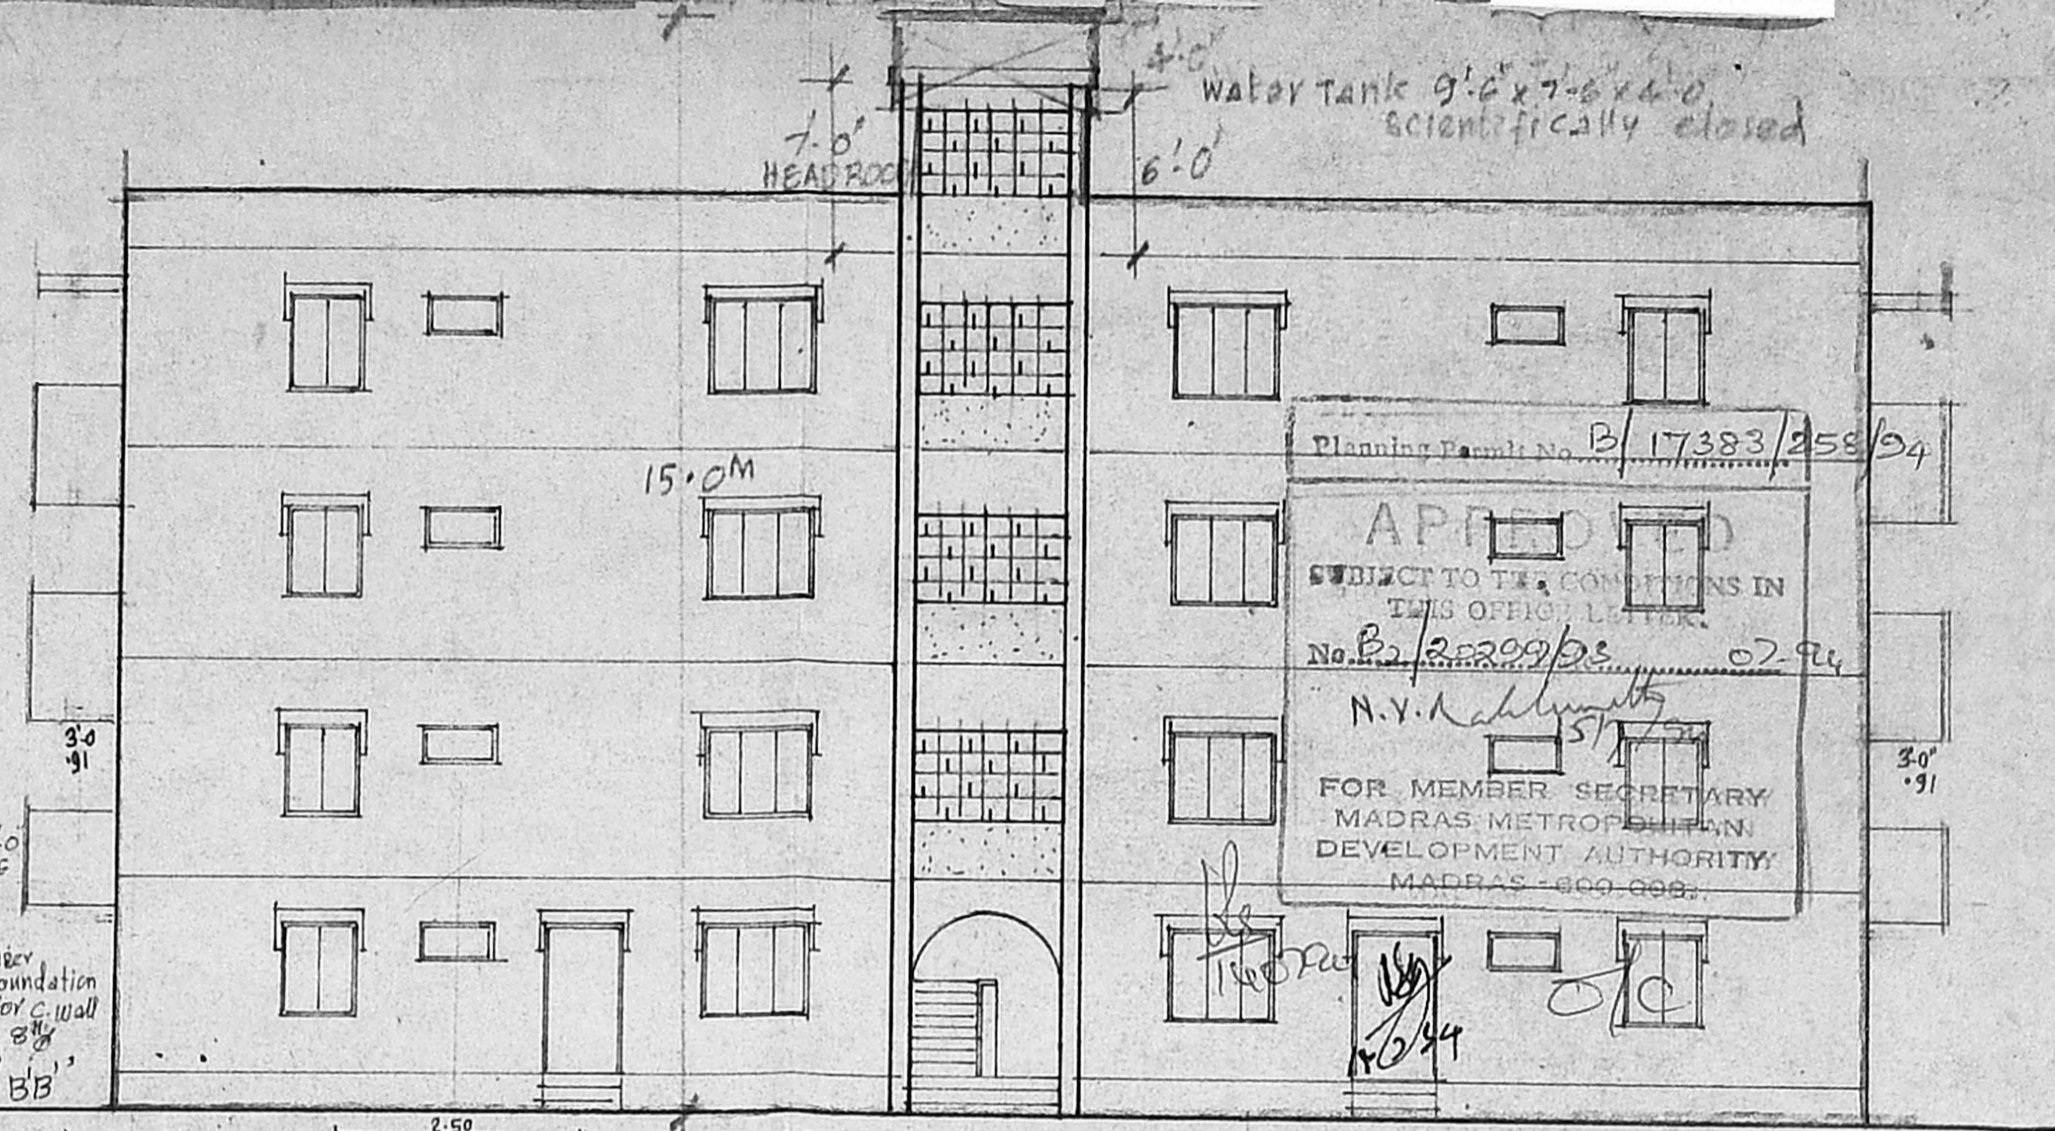 4'-0"
Water Tank 9'-6" x 7'-6" x 4'-0"
Scientifically closed
7'-0"
HEADROOM
6'-0"
Planning Permit No. B/17383/258/94
15.0M
APPROVED
SUBJECT TO THE CONDITIONS IN
THIS OFFICE LETTER.
No. B2/20299/93 07-94
N.V.
FOR MEMBER SECRETARY
MADRAS METROPOLITAN
DEVELOPMENT AUTHORITY
MADRAS-600 008.
3'-0
.91
3-0"
.91
O/C
oundation
or C. Wall
B'B'
2.50